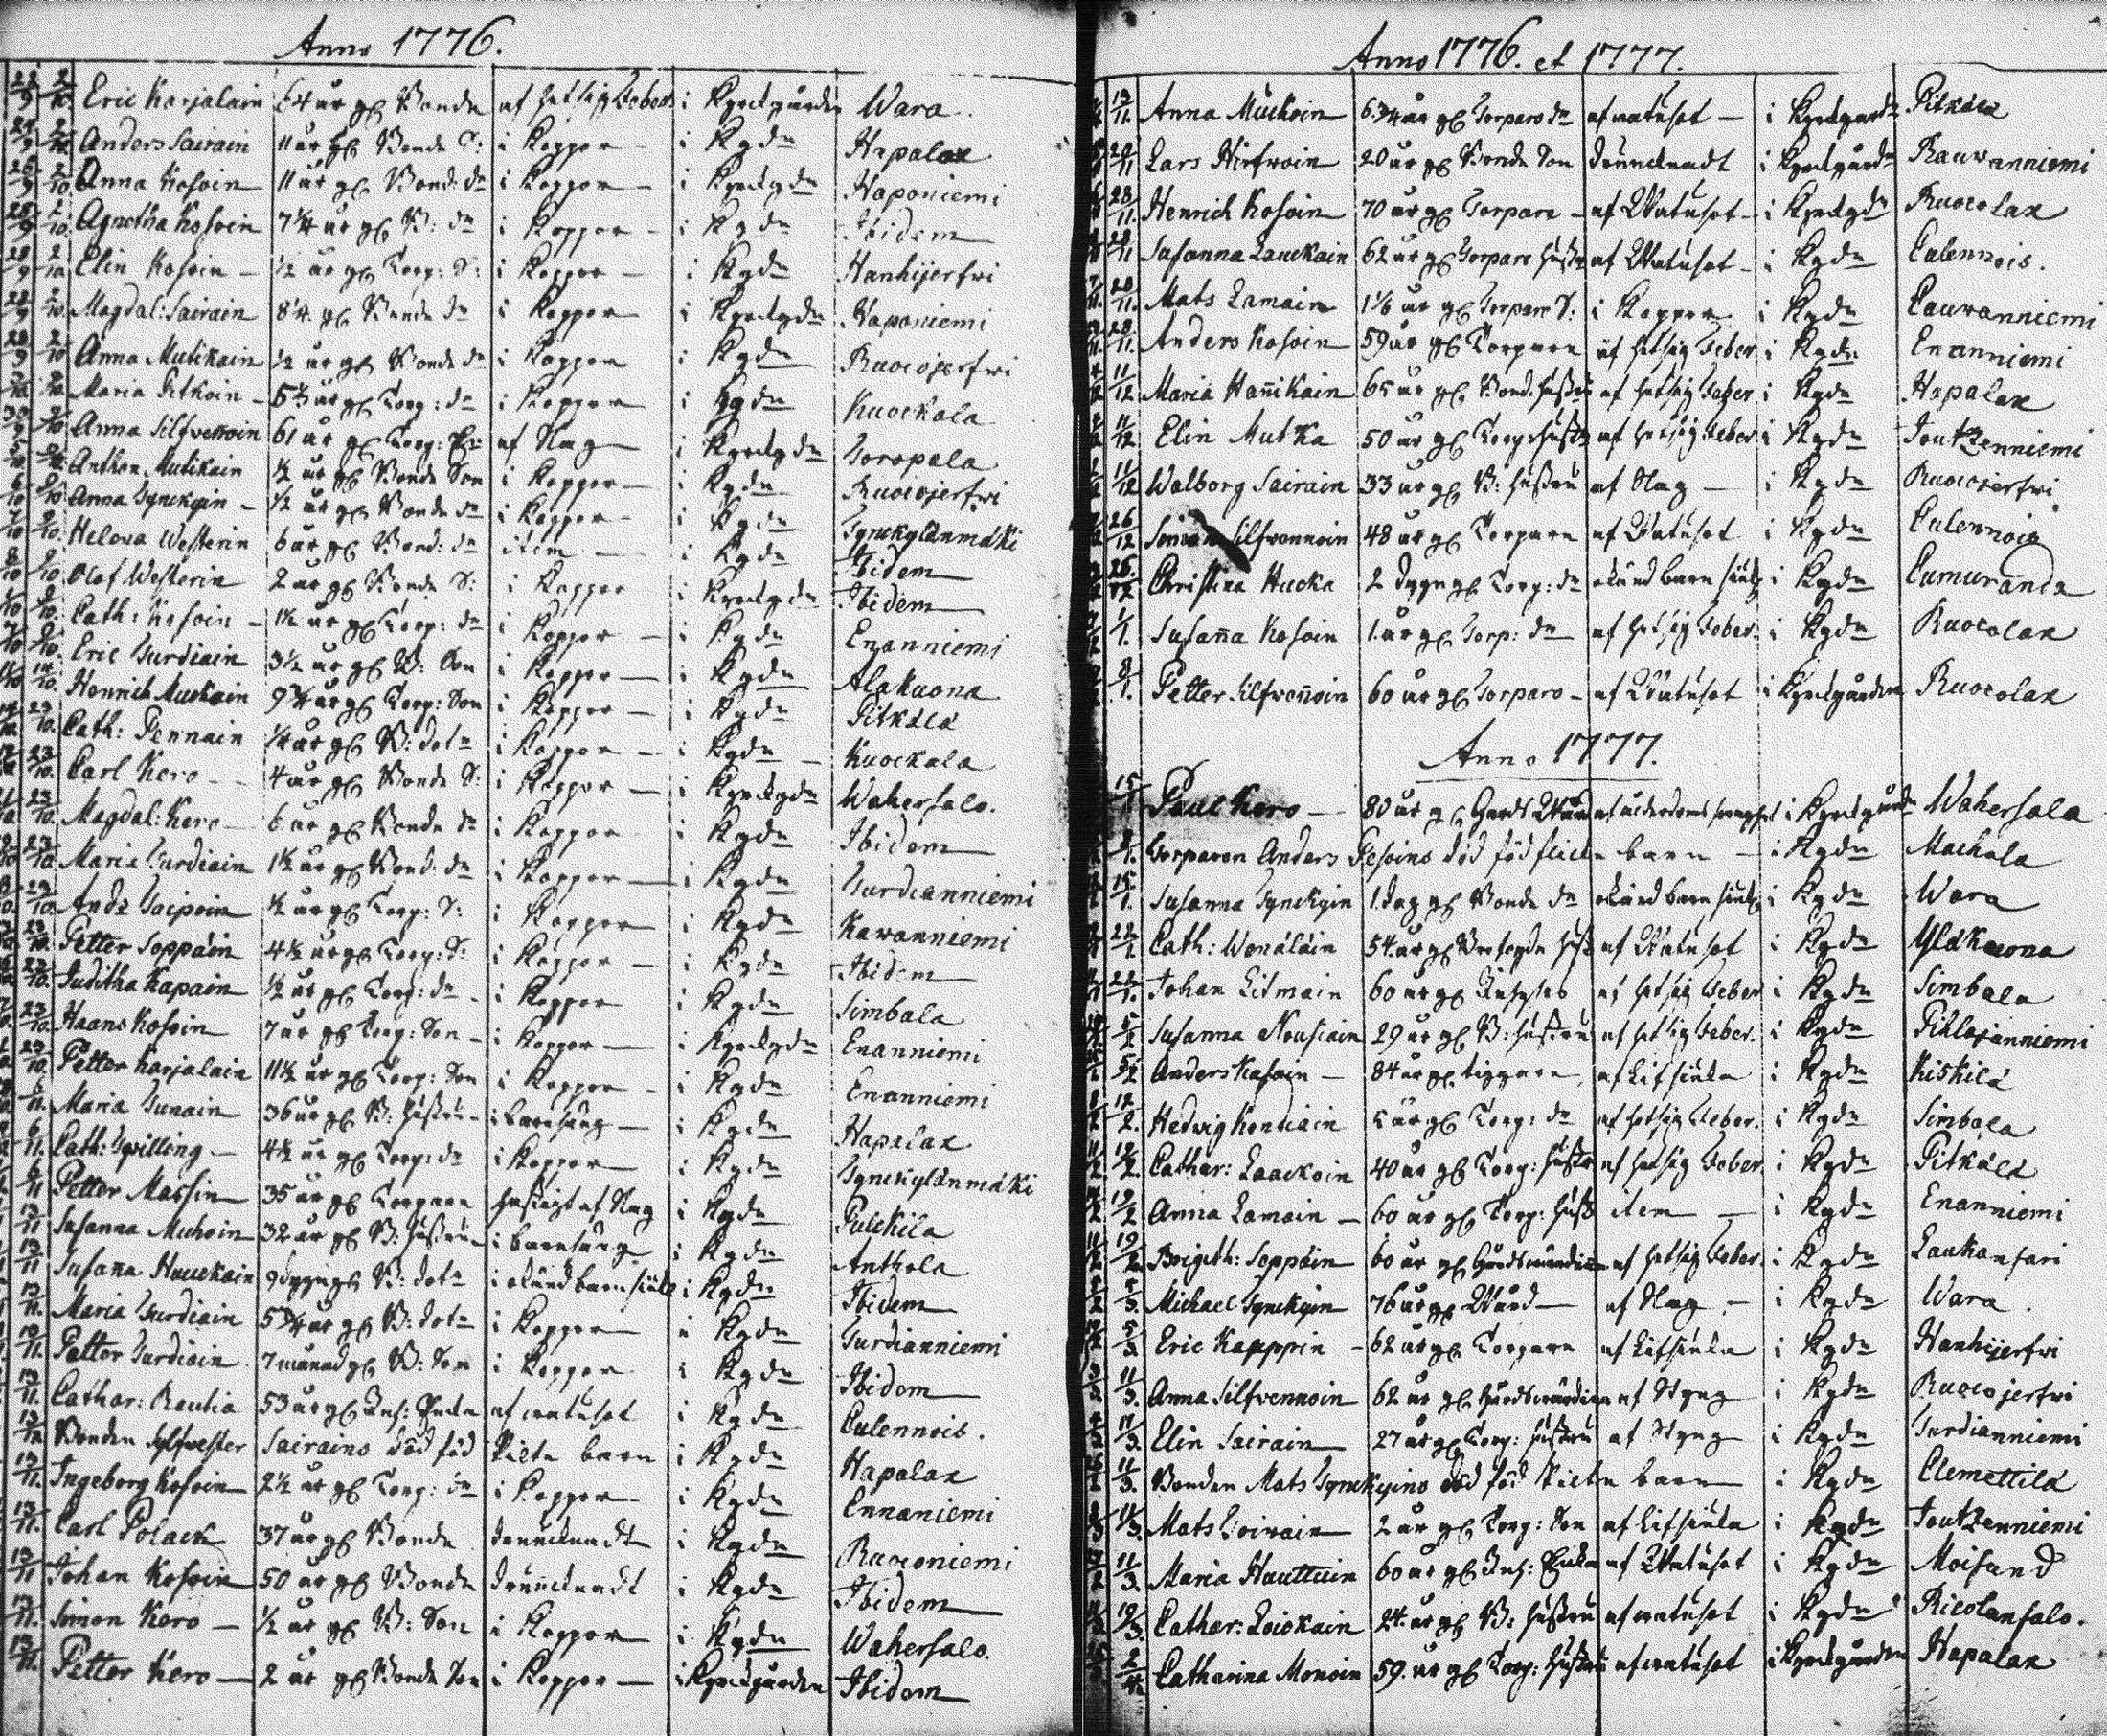 Anno 1776.
Eric Karjalain 64 år gl Bonde af hetsig Feber i Kyrckgården Wara.
Anders Sairain 11 år gl Bonde S: i Koppor i Kgdn Hapalax
Anna Kosoin 11 år gl Bond: dr i Koppor i Kyrckgdn Haponiemi
Agnetha Kosoin 7 1/4 år gl B: dr i Koppor i Kgdn Ibidem
Elin Kosoin 1/2 år gl Torp: i Koppor i Kgdn Hanhijerfwi
Magdal: Sairain 8 1/4 gl Bonde dr i Koppor i Kyrckgdn Haponiemi
Anna Mutikain 1/2 år gl Bonde dr i Koppor i Kgdn Ruocojerfwi
Maria Pitkoin år gl Torp: dr i Koppor i Kgdn Kuockala
Anna Silfvenoin 61 år gl Torp: af Slag i Kyrckgdn Toropala
Anthon Mutikain 1/2 år gl Bonde Son i Koppor i Kgdn Ruocojerfwi
Anna Tynckyin 1/2 år gl Bonde dr i Koppor i Kgdn Tynckylänmäki
Helena Westerin 6 år gl Bond: dr item i Kgdn Ibidem
Olof Westerin 2 år gl Bonde S: i Koppor i Kyrckgdn Ibidem
Cath: Kosoin 1 1/2 år gl Torp: dr i Koppor i Kgdn Enanniemi
Eric Turdiain 3 1/2 år gl B: Son i Koppor i Kgdn Alakuona
Henrich Muckain 9 3/4 år gl Torp: Son i Koppor i Kgdn Pitkälä
Cath: Pennain 1/4 år gl B: dotr i Koppor i Kgdn Kuockala
Carl Kero 4 år gl Bonde S: i Koppor i Kyrckgdn Wahersalo.
Magdal: Kero 6 år gl Bonde dr i Koppor i Kgdn Ibidem
Maria Turdiain 1 1/2 år gl Bond: dr i Koppor i Kgdn Turdianniemi
Ands Taipoin 1/2 år gl Torp: S: i Koppor i Kgdn Kawanniemi
Petter Soppäin 4 1/2 år gl Torp: S: i Koppor i Kgdn Ibidem
Juditha Kapain 1/2 år gl Torp: dr i Koppor i Kgdn Simbala
Haans Kosoin 7 år gl Torp: Son i Koppor i Kyrckgdn Enanniemi
Petter Karjalain 11 1/2 år gl Torp: Son i Koppor i Kgdn Enanniemi
Maria Junain 36 år gl B: hustru i barnsäng i Kgdn Hapalax
Cath: 4 1/2 år gl Torp: dr i Koppor i Kgdn Tynckylänmäki
Petter Massin 35 år gl Torpare hastigt af Slag i Kgdn Pulckila
Susanna Muhoin 32 år gl B: hustru i barnsäng i Kgdn Anthola
Susana Hauckain 9 dygn gl B: dotr i okänd barnsiuk i Kgdn Ibidem
Maria Turdiain 5 3/4 år gl B: dotr i Koppor i Kgdn Turdianniemi
Petter Turdiain 7 månad gl B: Son i Koppor i Kgdn Ibidem
Cathar: Rautia 53 år gl Inh: Encka af wattusot i Kgdn Eulennois.
Bonden Sylfwester Sairains död föd Picke barn i Kgdn Hapalax
Ingeborg Kosoin 2 1/2 år gl Torp: dr i Koppor i Kgdn Ennaniemi
Carl Polack 37 år gl Bonde druncknadt i Kgdn Ruoconiemi
Johan Kosoin 50 år gl Bonde druncknadt i Kgdn Ibidem
Simon Kero 1/2 år gl B: Son i Koppor i Kgdn Wahersalo.
Petter Kero 2 år gl Bonde Son i Koppor i Kyrckgården Ibidem
Anno 1776. et 1777.
13/11. Anna Muchoin 63/4 år gl Torpars dr af watusot i Kyrckgårdn Pitkälä
Lars Hirfwoin 20 år gl Bonde Son druncknadt i Kyrckgårdn Rauwanniemi
28/11. Henrich Kosoin 70 år gl Torpare af Watusot i Kyrckgdn Ruocolax
Susanna Lauckain 62 år gl Torpare hustru af Watusot i Kgdn Eulennois.
28/11. Mats Lamain 1 1/6 år gl Torpare S: i Koppor i Kgdn Rauwanniemi
28/11. Anders Kosoin 59 år gl Torpare af hetsig Feber i Kgdn Enanniemi
11/12 Maria Hanikain 65 år gl Bond. hustru af hetsig Feber i Kgdn Hapalax
11/12 Elin Mutka 50 år gl Torp: hustr af hetsig Feber i Kgdn Joutzenniemi
11/12 Walborg Sairain 33 år gl B: hustru af Slag i Kgdn Ruocojerfwi
26/12 Simon Silfwennoin 48 år gl Torpare af Watusot i Kgdn Eulennois
26/12 Christina Hucka 2 dygn gl Torp: dr okänd barn siuk i Kgdn Lumuranda
1/1. Susana Kosoin 1. år gl Torp: dr af hetsig Feber i Kgdn Ruocolax
8/1. Petter Silfwenoin 60 år gl Torpare af Watusot i Kyrckgården Ruocolax
Anno 1777.
Paul Kero 80 år gl af ålderdoms i Kyrckgårdn Wahersala
Torparen Anders Pesoins död föd flicke barn i Kgdn Mackola
15/1. Susanna Tynckyin 1. Dag gl Bonde dr okänd barn siuk i Kgdn Wara
22/1. Cath: Wenäläin 54. år gl hust af Watusot i Kgdn Yläkuona
22/1. Johan Litmain 60 år gl Inhyses af hetsig Feber i Kgdn Simbala
5/2 Susanna Nousiain 29 år gl B: hustru af hetsig Feber. i Kgdn Pihlajanniemi
5/2 Anders Kasain 84 år gl tiggare af Litsiuka i Kgdn Kiskilä
12/2. Hedvig Kontiain 5 år gl Torp: dr af hetsig Feber. i Kgdn Simbala
12/2. Cathar: Laackoin 40 år gl Torp: hustr af hetsig Feber. i Kgdn Pitkälä
19/2 Anna Lamain 60 år gl Torp: hust item i Kgdn Enanniemi
19/2 Brigith: Soppäin 60 år gl af hetsig Feber. i Kgdn Laukansari
5/3 Michael Tynckyin 76 år gl af Slag i Kgdn Wara.
5/3 Eric Kapppin 62 år gl Torpare af Litsiuka i Kgdn Hanhijerfwi
11/3. Anna Silfvennoin 62 år gl af Styng i Kgdn Ruocojerfwi
11/3. Elin Sairain 27 år gl Torp: hustru af Styng i Kgdn Turdianniemi
11/3. Bonden Mats Tynckyins död föd Picke barn i Kgdn Clemettilä
11/3. Mats Loirain 2 år gl Torp: Son af Litsiuka i Kgdn Joutzenniemi
11/3. Maria Hauttuin 60 år gl Inh: Encka af Watusot i Kgdn Moisund
19/3. Cathar: Loiokain 24. år gl B: hustru af watusot i Kgdn Ricolansalo.
2/4. Catharina Monoin 59. år gl Torp: hustru af watusot i Kyrckgården Hapalax